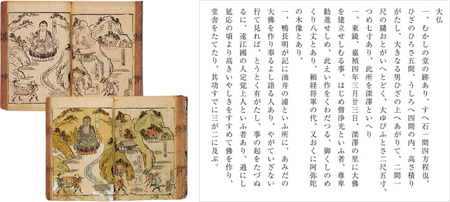 大仏
一、むかしの堂の跡あり、すへ石一間四方程也、
ひざのひろさ五間、うしろへ四間の内、高さ積り
がたし、大きなる男ひざの上へあがりて、二間一
尺の隨おとがいへとどく、大ゆびふとさ二尺五寸、
つめ七寸あり、此所を深澤といへり
一、東鏡、嘉禎四年三月廿三日、深澤の里に大佛
を建立せしむる事、はじめ僧淨光といふ者、尊卑
勸進せしめ、此えい作をくわだつる、御くしのめ
ぐり八丈とあり、頼経将軍の代、又おくに阿弥陀
の木像とあり、
一、鴨長明が記に油井の浦といふ所に、あみだの
大佛を作り奉るよし語る人あり、やがていざない
行て見れば、とうとく有がたし、事の起をたづぬ
るに、遠江國の人定覚上人といふ者あり、過にし
延応の頃より高きいやしきをすすめて佛を作り、
堂舎をたてたり、其功すでに三が二に及ぶ。